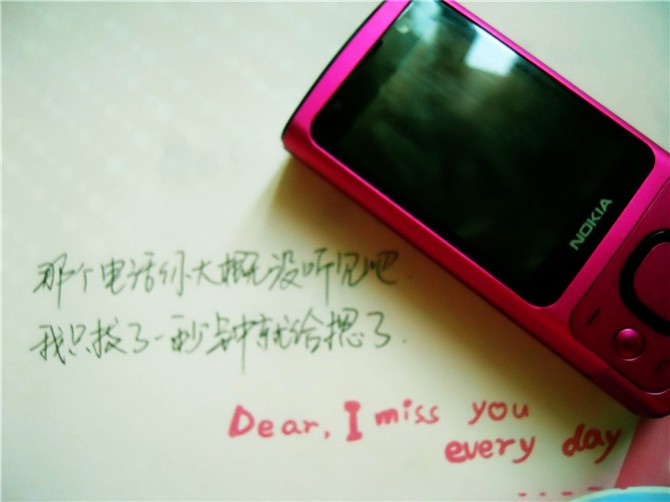 NOKIA
那个电话你大概没听见吧.
我只拨了一秒钟就给摁了.
Dear, I miss you
every day